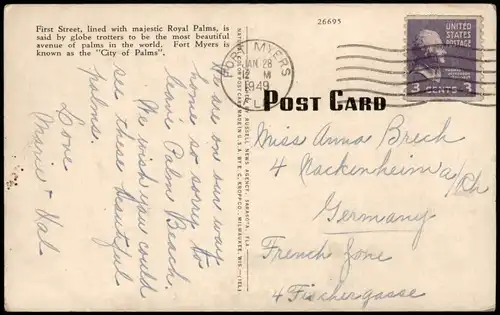 First Street, lined with majestic Royal Palms, is
said by globe trotters to be the most beautiful
avenue of palms in the world. Fort Myers is
known as the "City of Palms".
26695
FORT MYERS
JAN 28
12 M
1949
FLA
UNITED STATES
POSTAGE
3 CENTS 3
POST CARD
We are on our way
home so sorry to
leave Palm Beach.
We wish you could
see these beautiful
palms.
Love
Marie + Hal
Miss Anna Brech
4 Nackenheim a/Rh
Germany
French Zone
4 Fischergasse